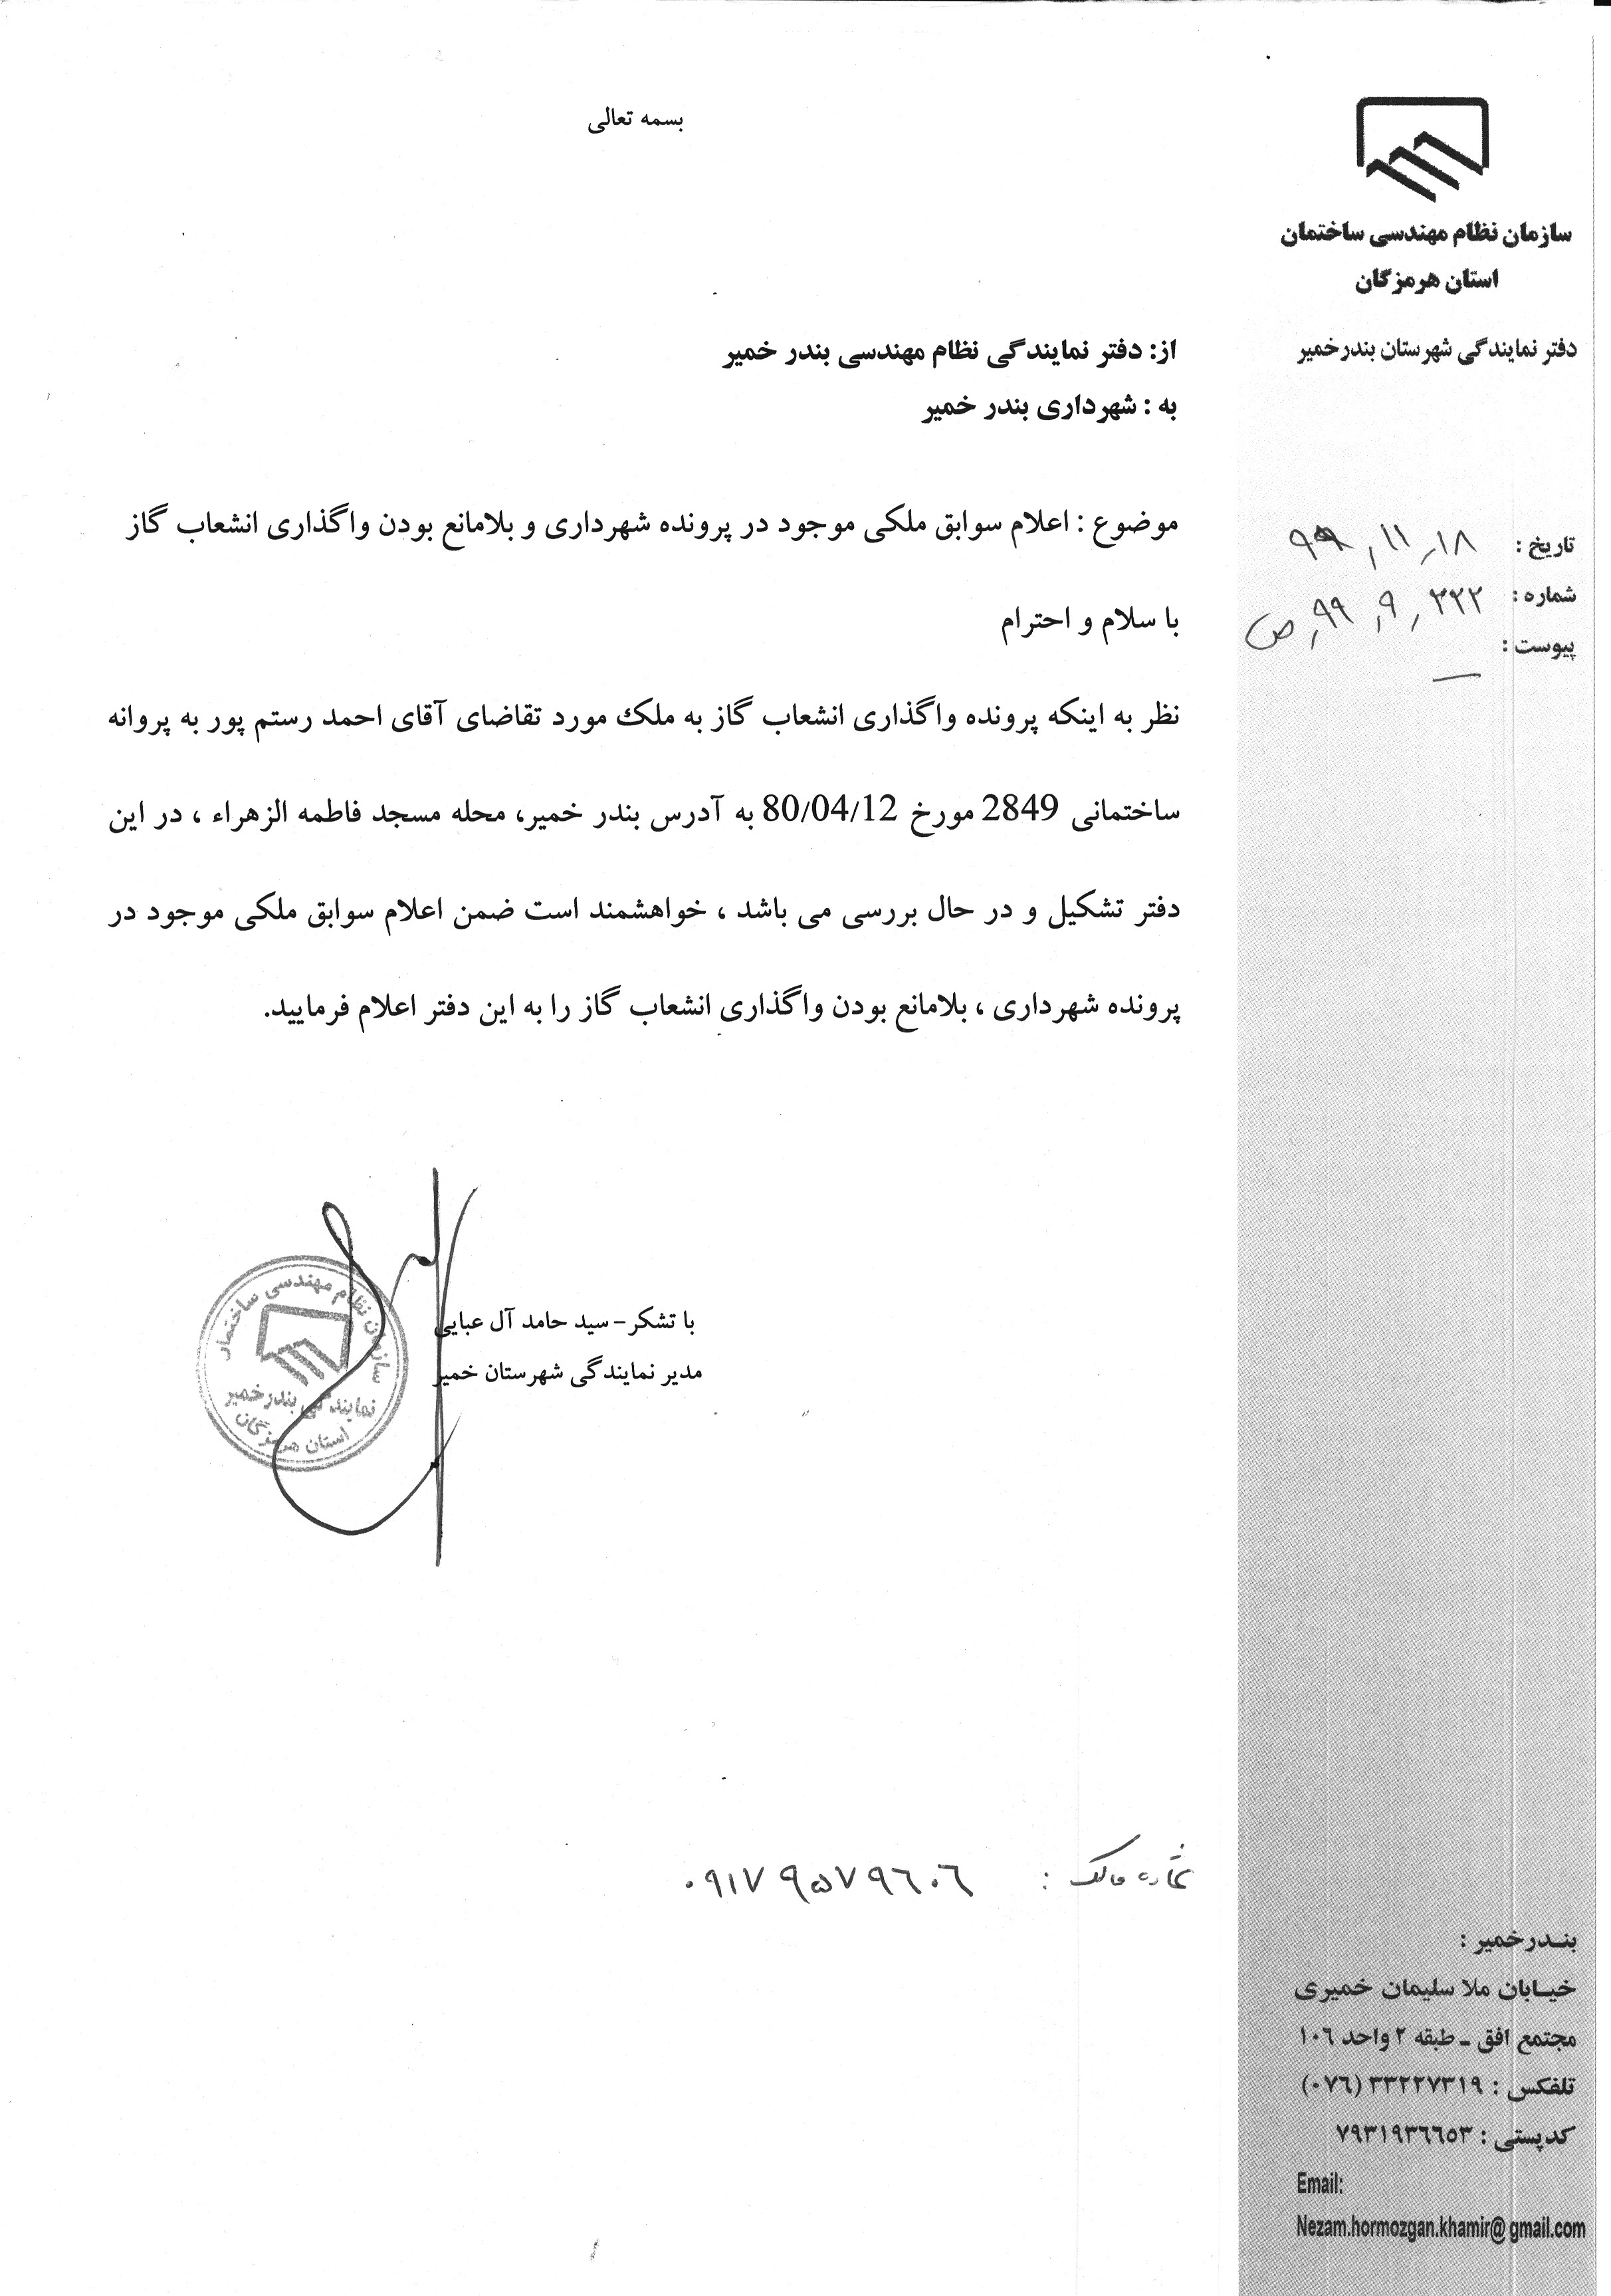 بسمه تعالی
سازمان نظام مهندسی ساختمان
استان هرمزگان
دفتر نمایندگی شهرستان بندرخمیر
تاریخ : ۹۹٫۱۱٫۱۸
شماره : ۳۲۲٫۹٫۹۹٫ص
پیوست : ـ
از: دفتر نمایندگی نظام مهندسی بندر خمیر
به : شهرداری بندر خمیر
موضوع : اعلام سوابق ملکی موجود در پرونده شهرداری و بلامانع بودن واگذاری انشعاب گاز
با سلام و احترام
نظر به اینکه پرونده واگذاری انشعاب گاز به ملک مورد تقاضای آقای احمد رستم پور به پروانه
ساختمانی 2849 مورخ 80/04/12 به آدرس بندر خمیر، محله مسجد فاطمه الزهراء ، در این
دفتر تشکیل و در حال بررسی می باشد ، خواهشمند است ضمن اعلام سوابق ملکی موجود در
پرونده شهرداری ، بلامانع بودن واگذاری انشعاب گاز را به این دفتر اعلام فرمایید.
با تشکر – سید حامد آل عبایی
مدیر نمایندگی شهرستان خمیر
سازمان نظام مهندسی ساختمان
نمایندگی بندرخمیر
استان هرمزگان
شماره مالک : ۰۹۱۷۹۵۷۹۶۰۶
بندرخمیر :
خیابان ملا سلیمان خمیری
مجتمع افق ـ طبقه ۲ واحد ۱۰۶
تلفکس : ۳۳۲۲۷۳۱۹ (۰۷۶)
کدپستی : ۷۹۳۱۹۳۶۶۵۳
Email:
Nezam.hormozgan.khamir@gmail.com